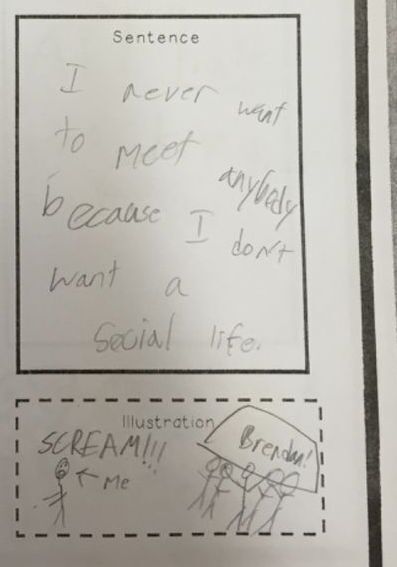 Sentence
I never want
to meet anybody
because I don't
want a
social life.
Illustration
SCREAM!!!
Brendan!
← Me